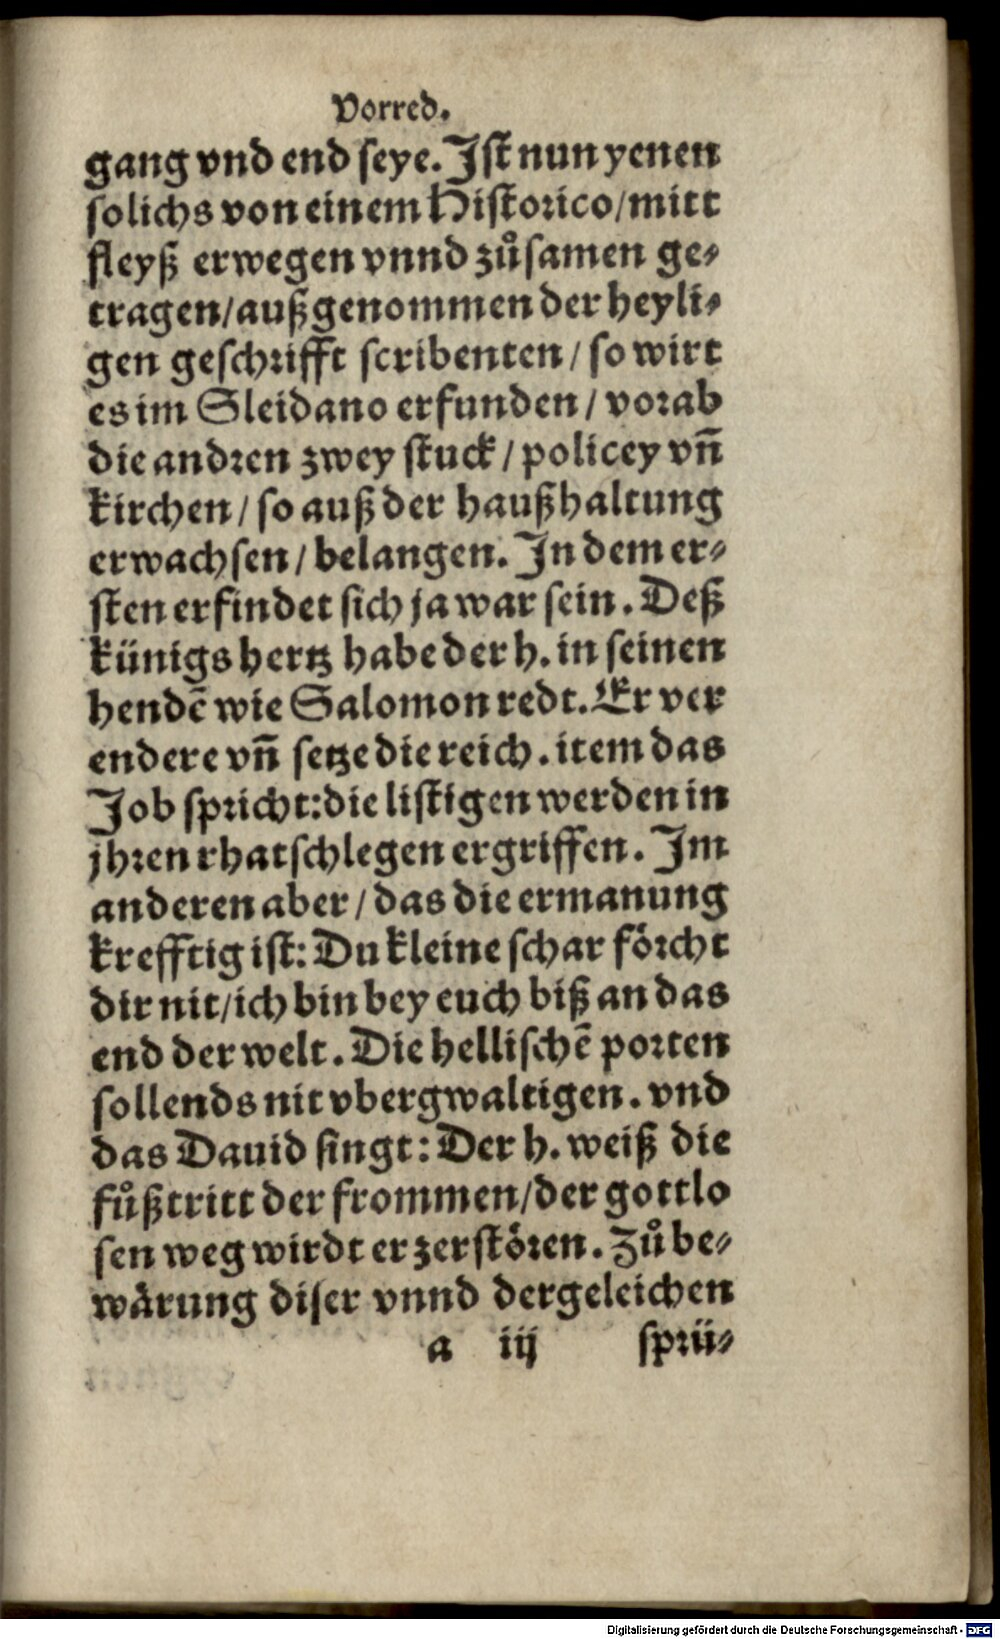 Vorred.
gang vnd end seye. Ist nun yenen
solichs von einem Historico/mitt
fleyß erwegen vnnd zůsamen ge⸗
tragen/außgenommen der heyli⸗
gen geschrifft scribenten/so wirt
es im Sleidano erfunden/vorab
die andren zwey stuck/policey vñ
kirchen/so auß der haußhaltung
erwachsen/belangen. In dem er⸗
sten erfindet sich ja war sein. Deß
künigs hertz habe der h. in seinen
hendē wie Salomon redt. Er ver
endere vñ setze die reich. item das
Job spricht: die listigen werden in
jhren rhatschlegen ergriffen. Im
anderen aber/das die ermanung
krefftig ist: Du kleine schar förcht
dir nit/ich bin bey euch biß an das
end der welt. Die hellischē porten
sollends nit vbergwaltigen. vnd
das Dauid singt: Der h. weiß die
fůßtritt der frommen/der gottlo
sen weg wirdt er zerstören. Zů be⸗
wärung diser vnnd dergeleichen
a iij sprü⸗
Digitalisierung gefördert durch die Deutsche Forschungsgemeinschaft - DFG